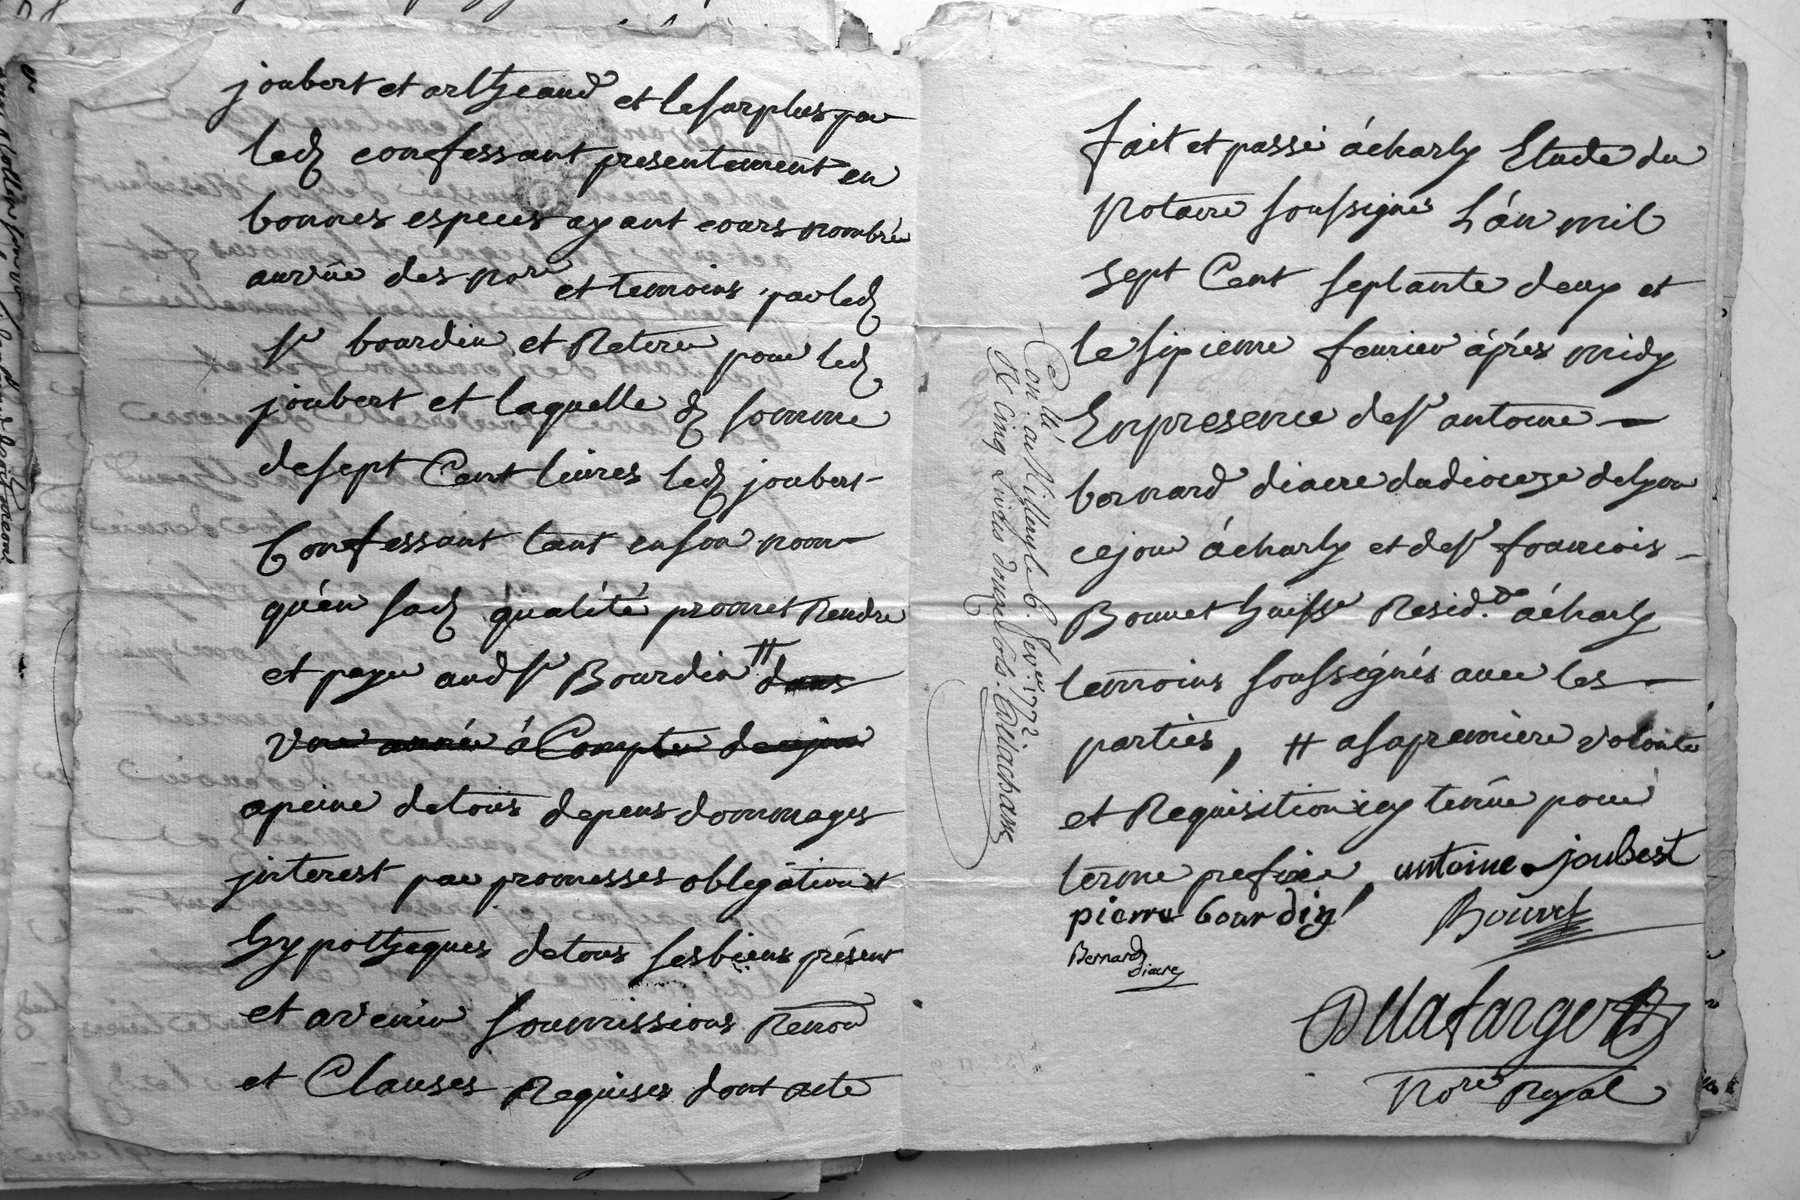 joubert et artheaud et le surplus par
led confessant presentement en
bonnes especes ayant cours nombrée
au vüe des no.re et temoins par led
sr bourdin et Retiré pour led
joubert et laquelle d somme
de sept Cent livres led joubert
Confessant tant en son nom
qu'en sad qualité promet Rendre
et payer aud sr Bourdin # dans
une année à Compter de ce jour
a peine de tous depens dommages
jnterest par promesses obligations
hypotheques de tous ses biens présent
et avenir soumissions Renon
et Clauses Requises dont acte
fait et passé à charly Etude du
Notaire soussigné L'an mil
sept Cent septante deux et
le sixieme fevrier après midy
En presence de sr antoine
bernard diacre du dioceze de lyon
ce jour à charly et de sr francois
Bonnet huissr Resid.t à charly
temoins soussignés avec les
parties, # a sa premiere volonté
et Requisition icy tenüe pour
terme prefixe antoine joubert
pierre bourdin Bonnet
Bernard
diacre
Dellafarge
No.re Royal
Con.llé a Millery le 6. fev.er 1772
R cinq Livres douze sols.